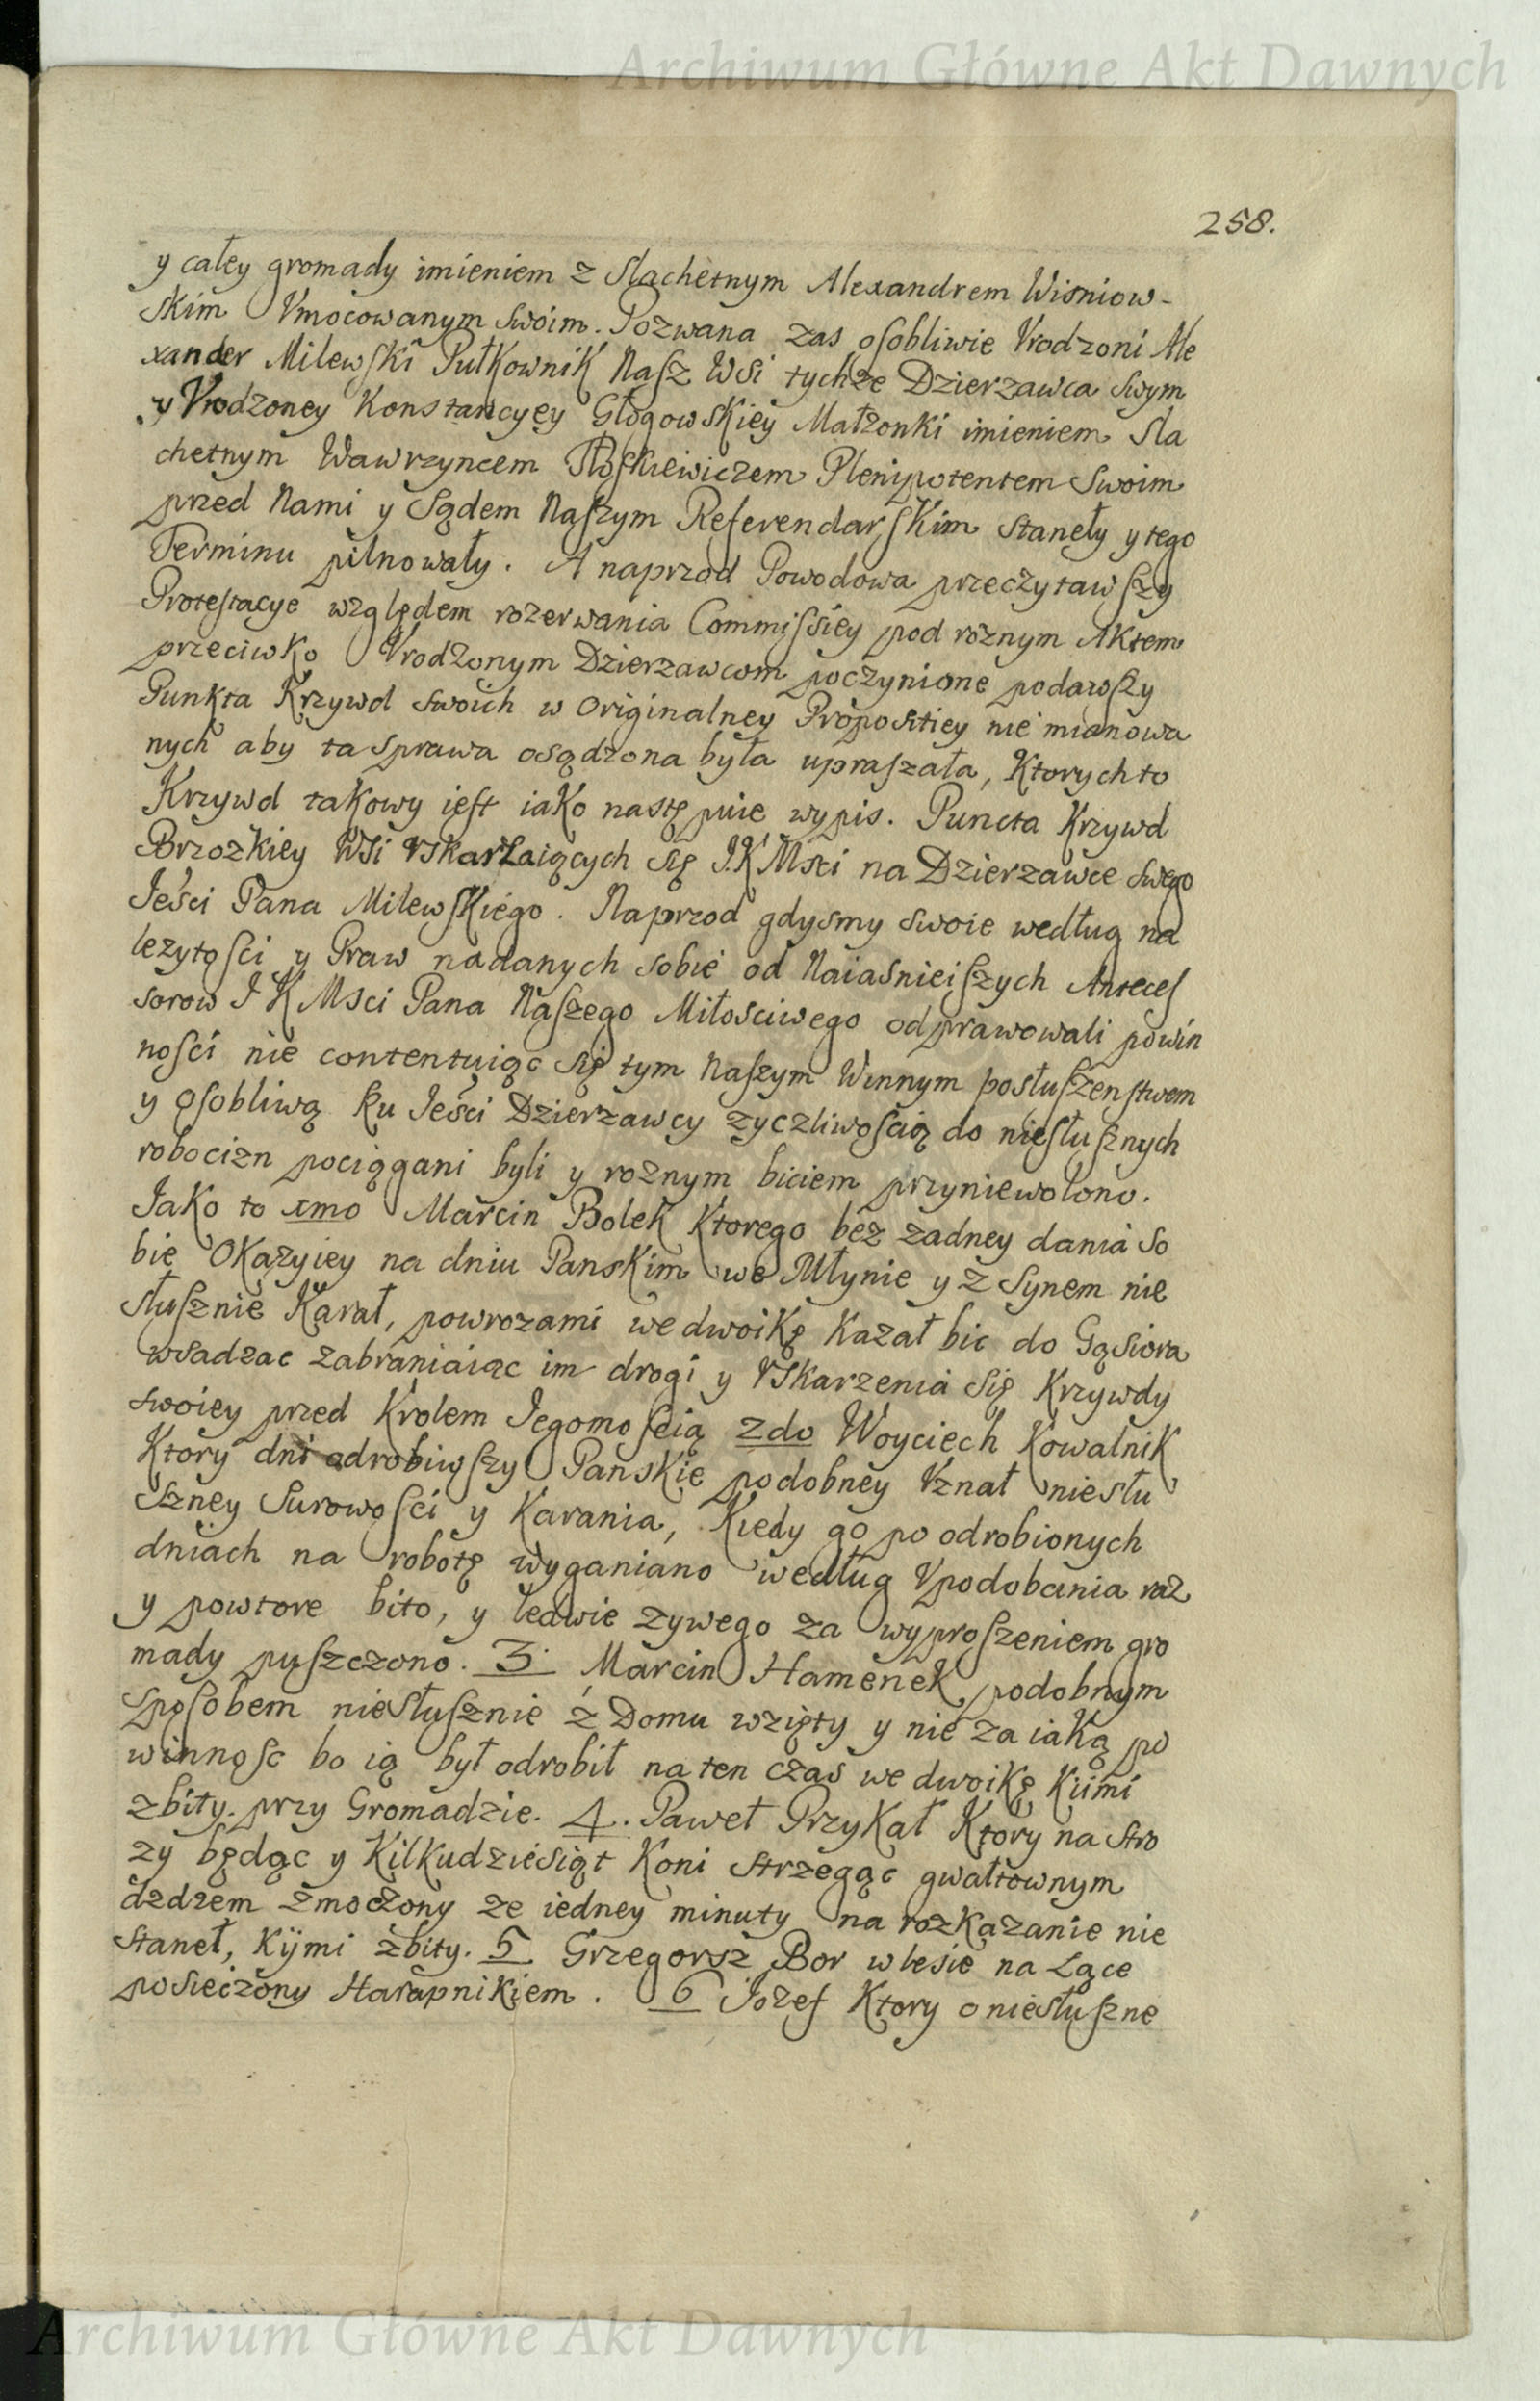 Archiwum Główne Akt Dawnych
258.
y całey gromady imieniem z Slachetnym Alexandrem Wisniow-
skim Vmocowanym swoim. Pozwana zas osobliwie Vrodzoni Ale
xander Milewski Pułkownik Nasz Wsi tychze Dzierzawca swym
y Vrodzoney Konstancyey Głogowskiey Małzonki imieniem Sla
chetnym Wawrzyncem Płoskiewiczem Plenipotentem Swoim
przed Nami y Sądem Naszym Referendarskim staneły y tego
Terminu pilnowały. A naprzod Powodowa przeczytawszy
Protestacye względem rozerwania Commissiey pod roznym Aktem
przeciwko Vrodzonym Dzierzawcom poczynione podawszy
Punkta Krzywd swoich w Originalney Propositiey nie mianowa
nych aby ta sprawa osądzona była upraszała, Ktorych to
Krzywd takowy iest iako następuie wypis. Puncta Krzywd
Brzozkiey Wsi Vskarzaiących się J.K Msci na Dzierzawce swego
Jeści Pana Milewskiego. Naprzod gdysmy swoie według na
lezytości y Praw nadanych sobie od Naiasnieiszych Anteces
sorow J K Msci Pana Naszego Miłosciwego odprawowali powin
ności nie contentuiąc się tym Naszym Winnym posłuszenstwem
y osobliwą ku Jeści Dzierzawcy zyczliwością do niesłusznych
robocizn pociągani byli y roznym biciem przyniewolono.
Jako to 1mo Marcin Bolek Ktorego bez zadney dania so
bie Okazyiey na dniu Panskim we Młynie y z Synem nie
słusznie Karał, powrozami we dwoikę Kazał bic do Gąsiora
wsadzac zabraniaiąc im drogi y Vskarzenia się Krzywdy
swoiey przed Krolem Jegomoscią 2do Woyciech Kowalnik
Ktory dni odrobiwszy Panskie podobney Vznał niesłu
szney Surowości y Karania, Kiedy go po odrobionych
dniach na robotę wyganiano według Vpodobania raz
y powtore bito, y ledwie zywego za wyproszeniem gro
mady puszczono. 3. Marcin Hamenek podobnym
sposobem niesłusznie z Domu wzięty y nie za iaką po
winnosc bo ią był odrobił na ten czas we dwoikę Kiimi
zbity przy Gromadzie. 4. Paweł Przykał Ktory na stro
zy będąc y Kilkudziesiąt Koni strzegąc gwałtownym
dzdzem zmoczony ze iedney minuty na rozkazanie nie
staneł, Kiimi zbity. 5 Grzegorsz Bor w lesie na Łące
posieczony Harapnikiem. 6 Jozef Ktory o niesłuszne
Archiwum Główne Akt Dawnych